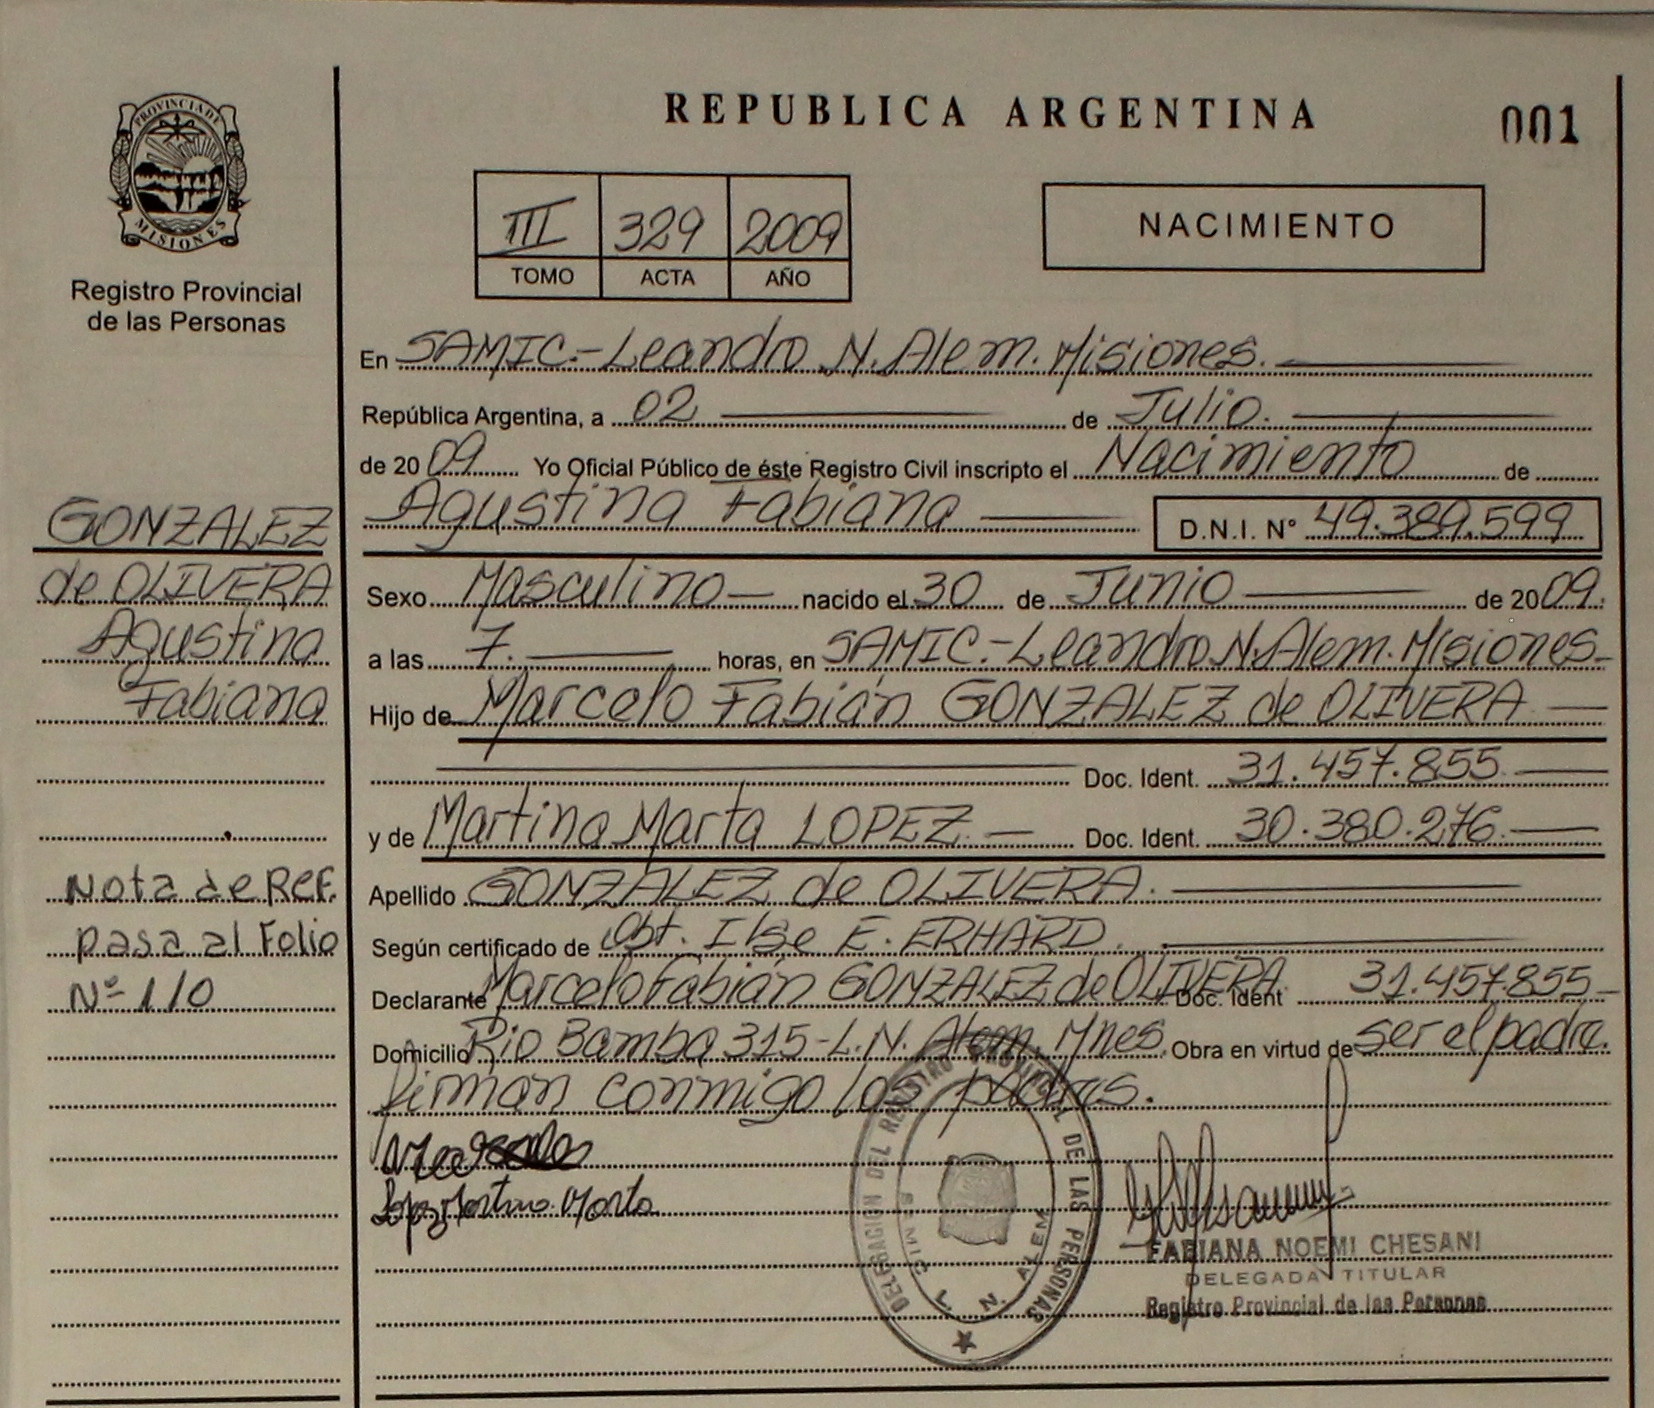 REPUBLICA ARGENTINA
001
PROVINCIA DE
MISIONES
Registro Provincial
de las Personas
III 329 2009
TOMO ACTA AÑO
NACIMIENTO
En SAMIC.-Leandro N. Alem. Misiones.
República Argentina, a 02 de Julio.
de 2009 Yo Oficial Público de éste Registro Civil inscripto el Nacimiento de
Agustina Fabiana D.N.I. N° 49.389.599
Sexo Masculino nacido el 30 de Junio de 2009.
a las 7. horas, en SAMIC.-Leandro N. Alem. Misiones-
Hijo de Marcelo Fabián GONZALEZ de OLIVERA
Doc. Ident. 31.457.855
y de Martina Marta LOPEZ Doc. Ident. 30.380.276
Apellido GONZALEZ de OLIVERA.
Según certificado de Obt. Ilse E. ERHARD.
Declarante Marcelo Fabián GONZALEZ de OLIVERA Doc. Ident 31.457.855
Domicilio Rio Bamba 315-L.N. Alem. Mnes. Obra en virtud de ser el padre.
firman conmigo los padres.
Lopez Martina Marta
GONZALEZ
de OLIVERA
Agustina
Fabiana
Nota de REF.
pasa al Folio
Nº 110
DELEGACION DEL REGISTRO PROVINCIAL DE LAS PERSONAS
SAMIC L. N. ALEM
FABIANA NOEMI CHESANI
DELEGADA TITULAR
Registro Provincial de las Personas